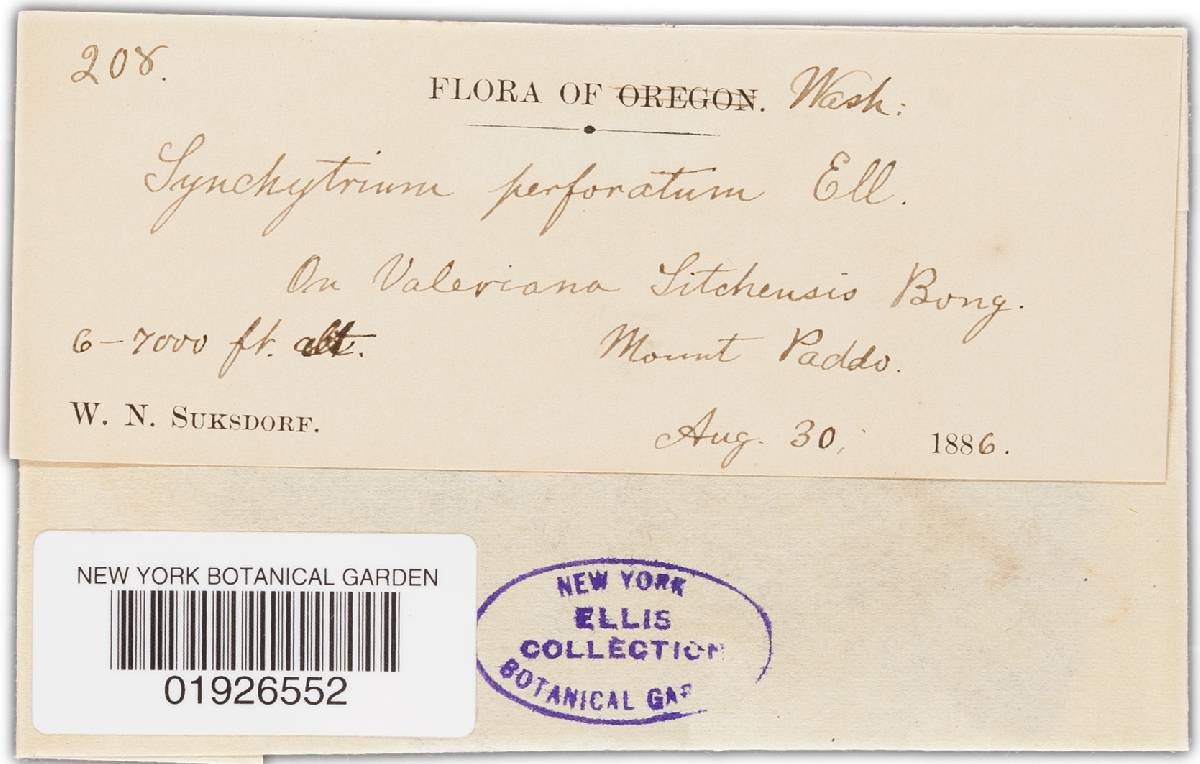 208.
FLORA OF OREGON. Wash:
Synchytrium perforatum Ell.
On Valeriana Sitchensis Bong.
6-7000 ft. alt. Mount Paddo.
W. N. SUKSDORF. Aug. 30, 1886.
NEW YORK BOTANICAL GARDEN
01926552
NEW YORK
ELLIS
COLLECTION
BOTANICAL GAR